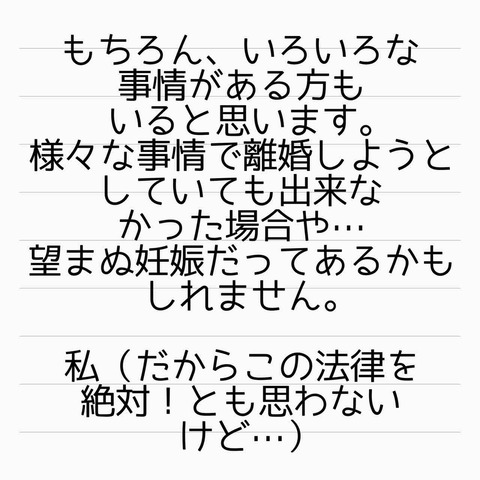 もちろん、いろいろな
事情がある方も
いると思います。
様々な事情で離婚しようと
していても出来な
かった場合や…
望まぬ妊娠だってあるかも
しれません。
私（だからこの法律を
絶対！とも思わない
けど…）